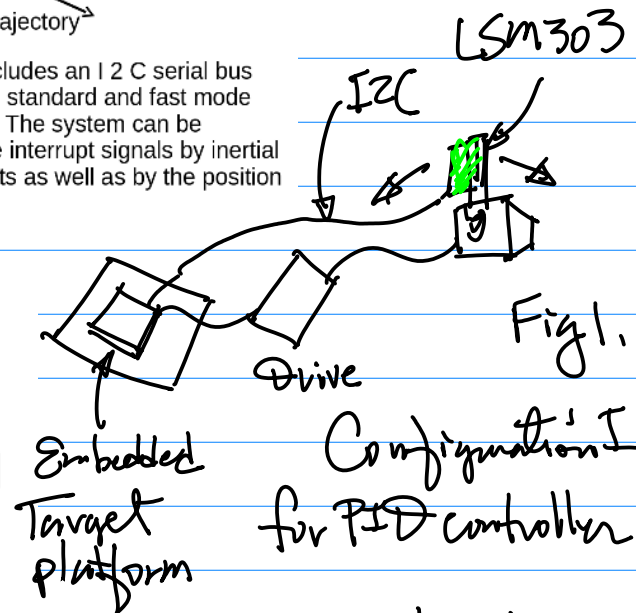 ajectory
LSM303
cludes an I 2 C serial bus
standard and fast mode
I2C
The system can be
e interrupt signals by inertial
ts as well as by the position
Fig 1.
Drive
Embedded
Target
platform
Configuration I
for PID controller